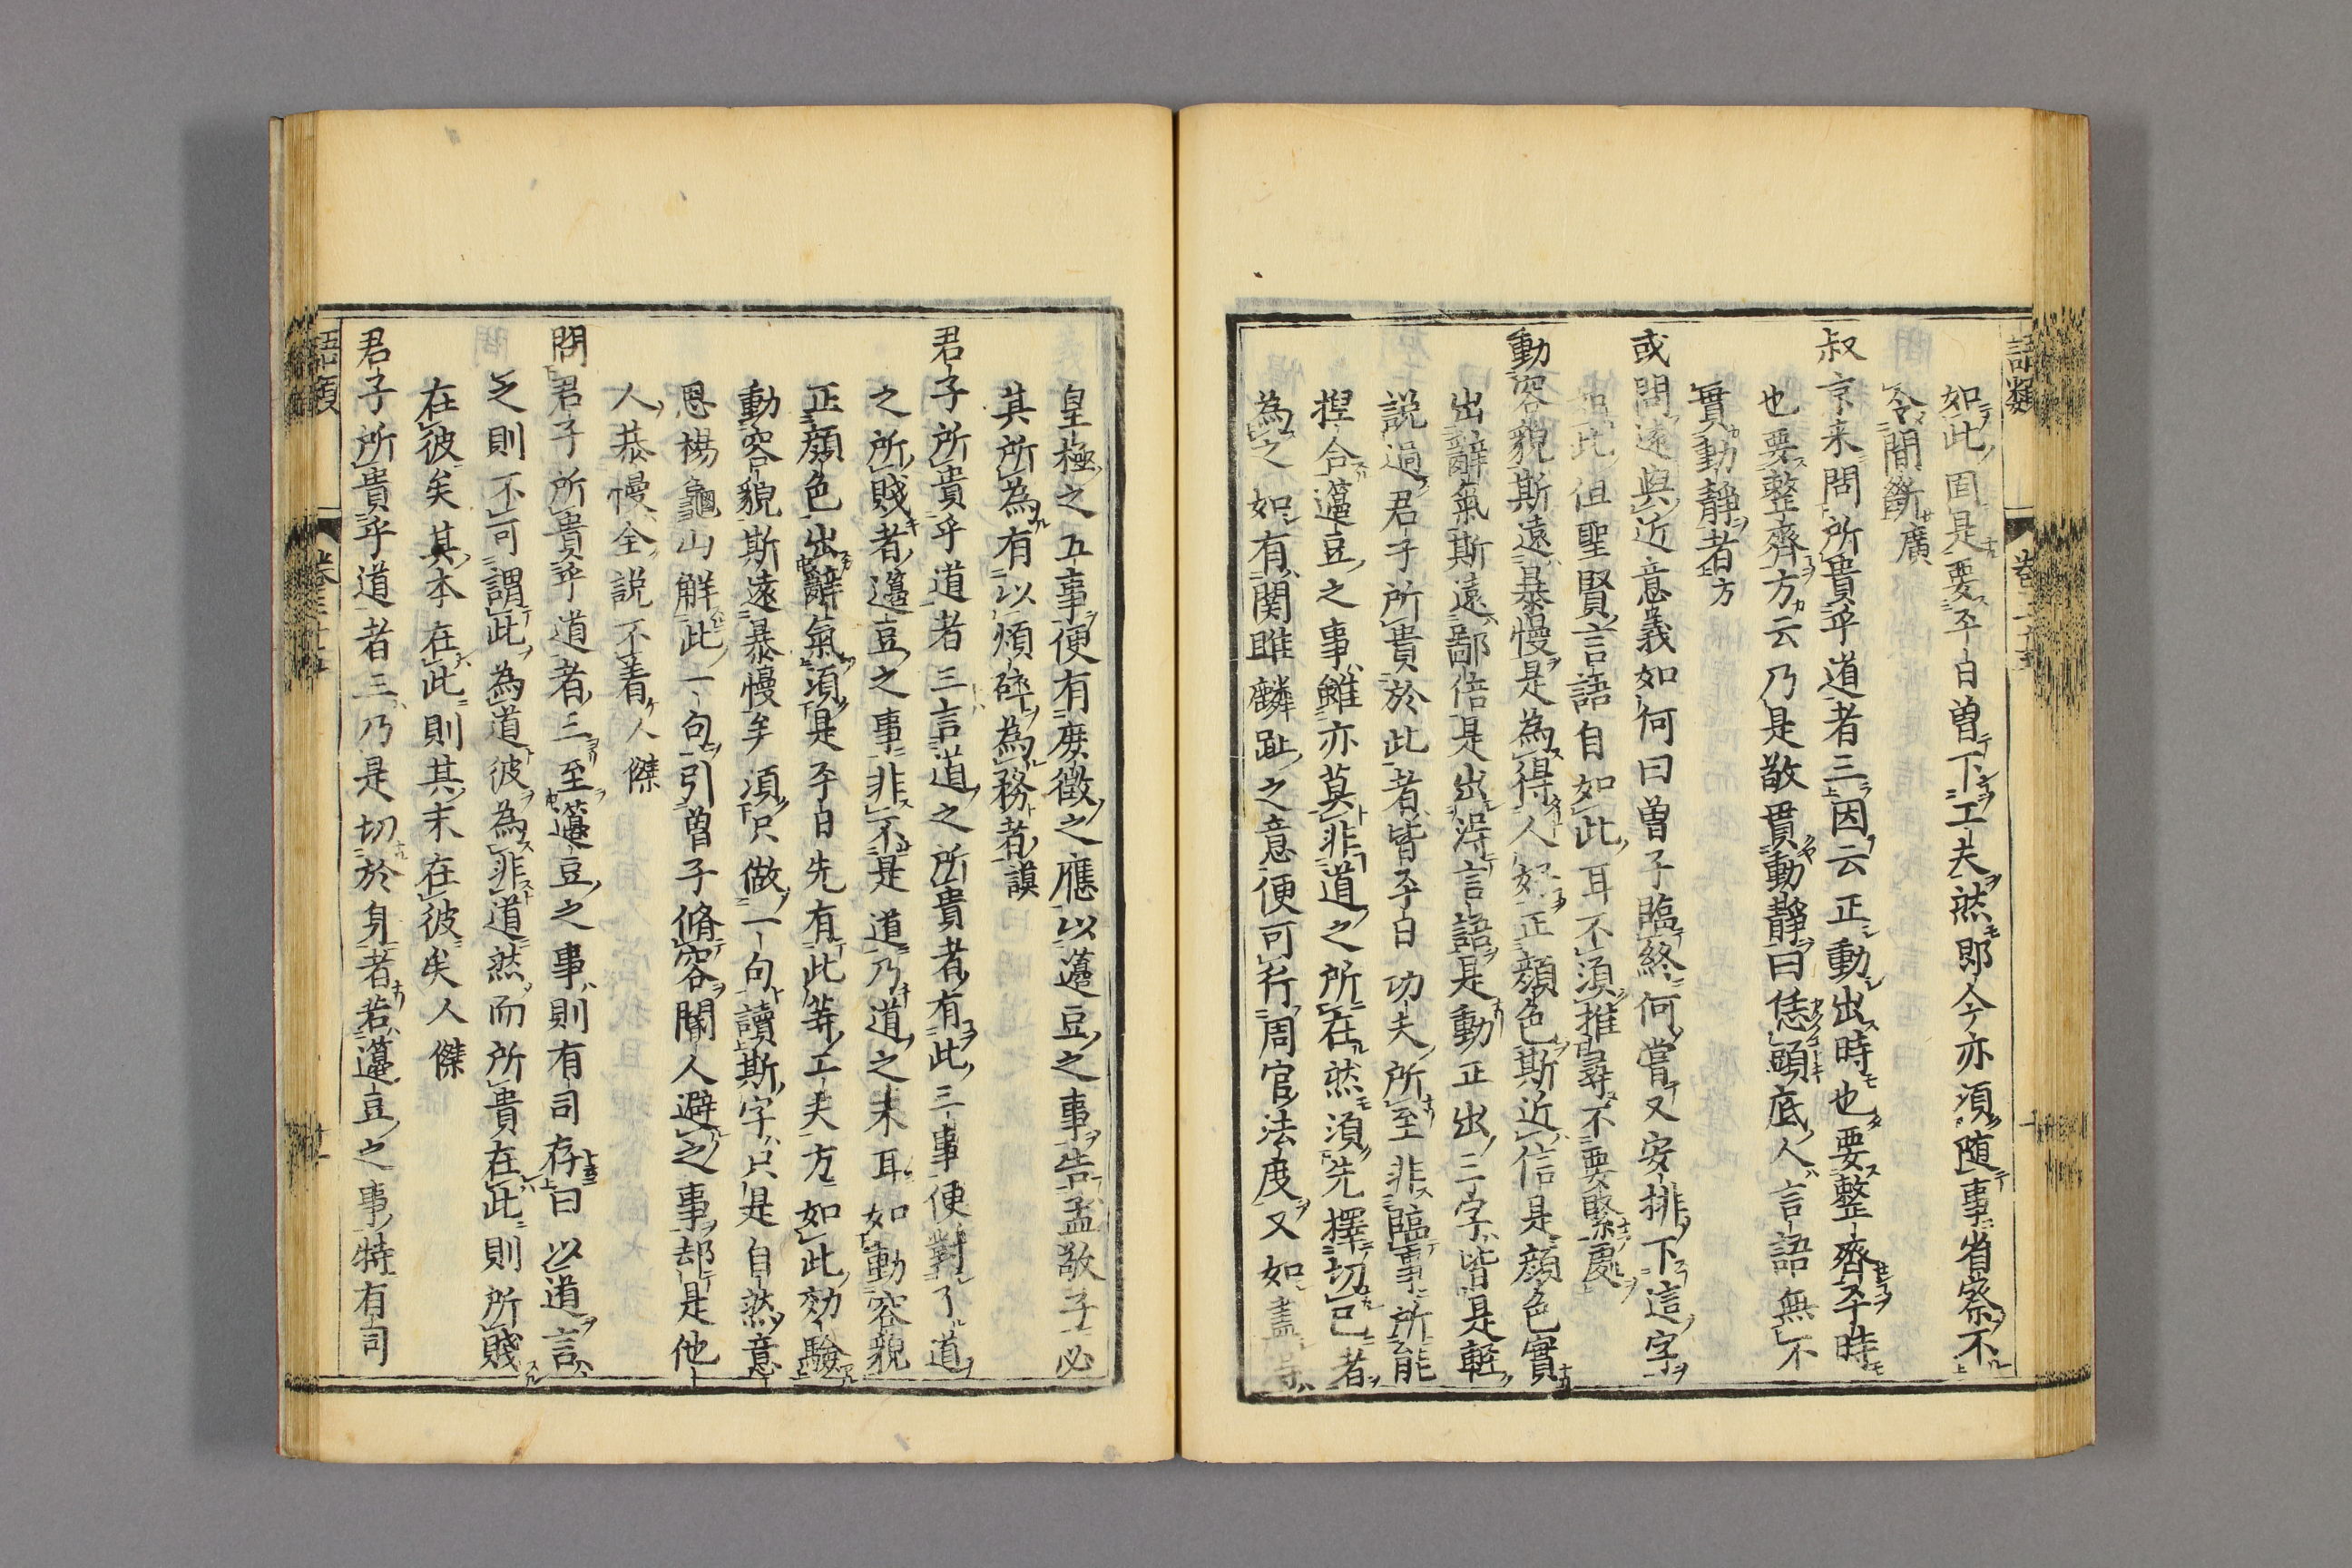 語類
卷三十五
如此固是要平日曽下工夫然即今亦須随事省察不
令間斷廣
叔亰来問所貴乎道者三因云正動出時也要整齊平時
也要整齊方云乃是敬貫動静曰恁頭底人言語無不
貫動静者方
或問遠與近意義如何曰曽子臨終何嘗又安排下這字
如此但聖賢言語自如此耳不須推尋不要緊處
動容貌斯遠暴慢是為得人好正顔色斯近信是顔色實
出辭氣斯遠鄙倍是出得言語是動正出三字皆是輕
説過君子所貴於此者皆平日功夫所至非臨事所能
捏合籩豆之事雖亦莫非道之所在然須先擇切己者
為之如有関雎麟趾之意便可行周官法度又如盡得
皇極之五事便有庶徴之應以籩豆之事告孟敬子必
其所為有以煩碎為務者謨
君子所貴乎道者三言道之所貴者有此三事便對了道
之所賤者籩豆之事非不是道乃道之末耳如動容貌
正顔色出辭氣須是平日先有此等工夫方如此効驗
動容貌斯遠暴慢矣須只做一句讀斯字只是自然意
思楊龜山解此一句引曽子脩容閽人避之事却是他
人恭慢全説不着人傑
問君子所貴乎道者三至籩豆之事則有司存曰以道言
之則不可謂此為道彼為非道然而所貴在此則所賤
在彼矣其本在此則其末在彼矣人傑
君子所貴乎道者三乃是切於身者若籩豆之事特有司
語類
卷三十五
十一